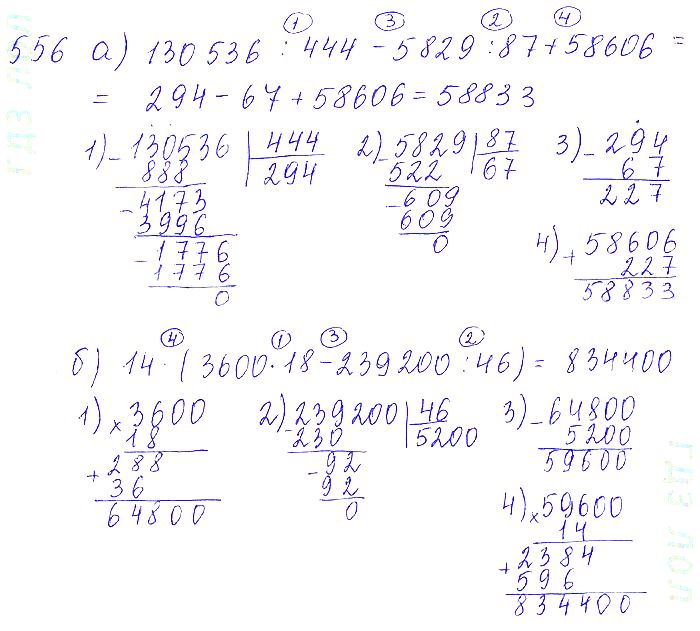 556 а) 130 536 : 444 - 5829 : 87 + 58606 =
① ③ ② ④
= 294 - 67 + 58606 = 58833
1) - 130536 | 444
888 | 294
- 4173
3996
- 1776
1776
0
2) - 5829 | 87
522 | 67
- 609
609
0
3) - 294
67
227
4) + 58606
227
58833
④ ① ③ ②
б) 14 · (3600 · 18 - 239200 : 46) = 834400
1) × 3600
18
+ 288
36
64800
2) - 239200 | 46
230 | 5200
- 92
92
0
3) - 64800
5200
59600
4) × 59600
14
+ 2384
596
834400